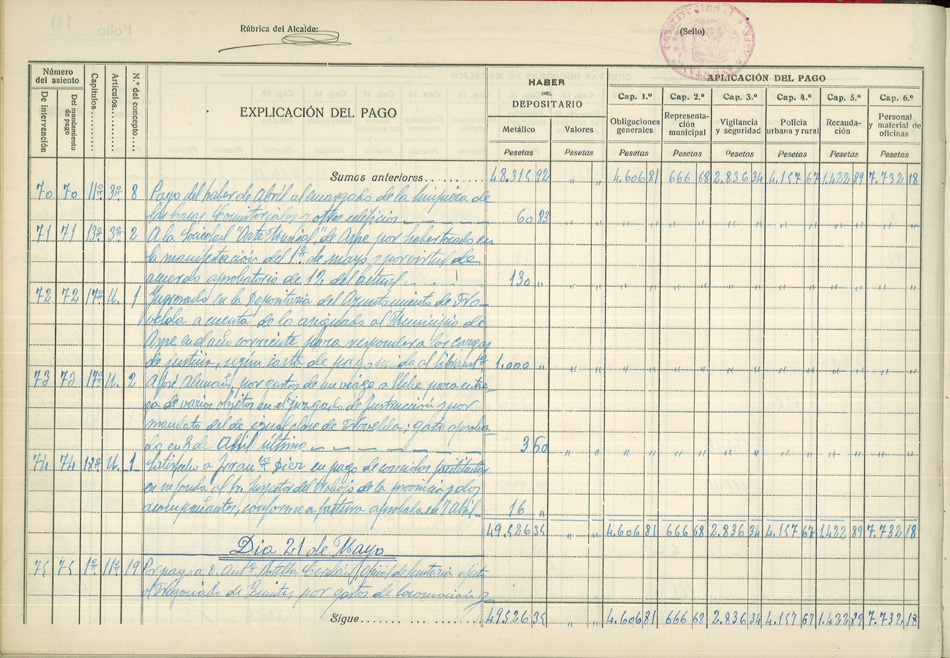 Rúbrica del Alcalde:
(Sello)
CONSTITUCIONAL
Número del asiento
De intervención
Del mandamiento de pago
Capítulos
Artículos
N.º del concepto
EXPLICACIÓN DEL PAGO
HABER
DEL
DEPOSITARIO
Metálico
Valores
Pesetas
Pesetas
APLICACIÓN DEL PAGO
Cap. 1.º Cap. 2.º Cap. 3.º Cap. 4.º Cap. 5.º Cap. 6.º
Obligaciones generales
Representación municipal
Vigilancia y seguridad
Policía urbana y rural
Recaudación
Personal y material de oficinas
Pesetas Pesetas Pesetas Pesetas Pesetas Pesetas
Sumas anteriores 48.315 92 " " 4.606 81 666 68 2.836 34 4.157 67 1.422 89 7.732 18
70 70 11º 3º 8 Pago del haber de Abril al encargado de la limpieza de
las Casas Consistoriales y otros edificios 60 83
71 71 13º 3º 2 A la Sociedad "Arte Musical" de Aspe por haber tocado en
la manifestación del 1º de mayo y por virtud de
acuerdo aprobatorio de 12 del actual 130 "
72 72 17º U. 1 Ingresado en la Depositaría del Ayuntamiento de No-
velda a cuenta de lo asignado al Municipio de
Aspe en el año corriente para responder a las cargas
de justicia, según carta de pago unida al libramtº 1.000 "
73 73 17º U. 2 A José Alemañ, por gastos de un viage a Elche para entre-
ga de varios objetos en el juzgado de Instrucción y por
mandato del de igual clase de Novelda; gasto aproba-
do en 8 de Abril último 3 60
74 74 18º U. 1 Satisfecho a Franº Díez en pago de comidas facilitadas
en su fonda al Sr. Inspector del Trabajo de la provincia y dos
acompañantes, conforme a factura aprobada en 7 Abril 16 "
49.526 35 " " 4.606 81 666 68 2.836 34 4.157 67 1.422 89 7.732 18
Dia 21 de Mayo
75 75 1º 11º 19 Por pago a D. Antº Cerdán, oficial de Secretaría
al Negociado de Quintas por gastos de locomoción y
Sigue 49.526 35 " " 4.606 81 666 68 2.836 34 4.157 67 1.422 89 7.732 18